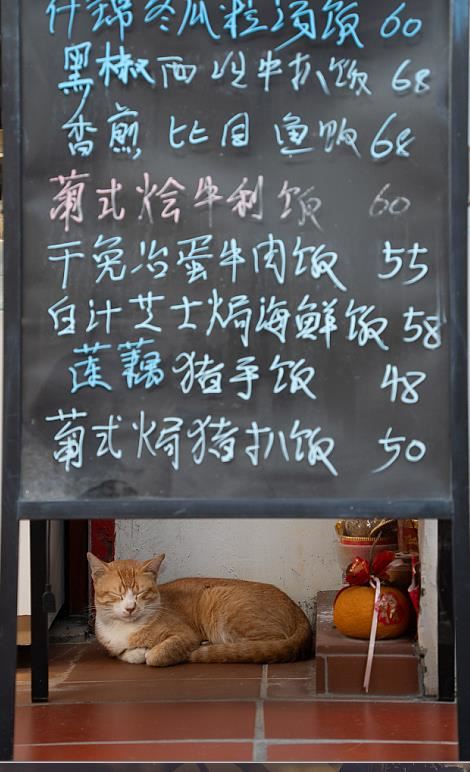 什锦冬瓜粒汤饭 60
黑椒西冷牛扒饭 68
香煎比目鱼饭 68
葡式烩牛利饭 60
干免治蛋牛肉饭 55
白汁芝士焗海鲜饭 58
莲藕猪手饭 48
葡式焗猪扒饭 50